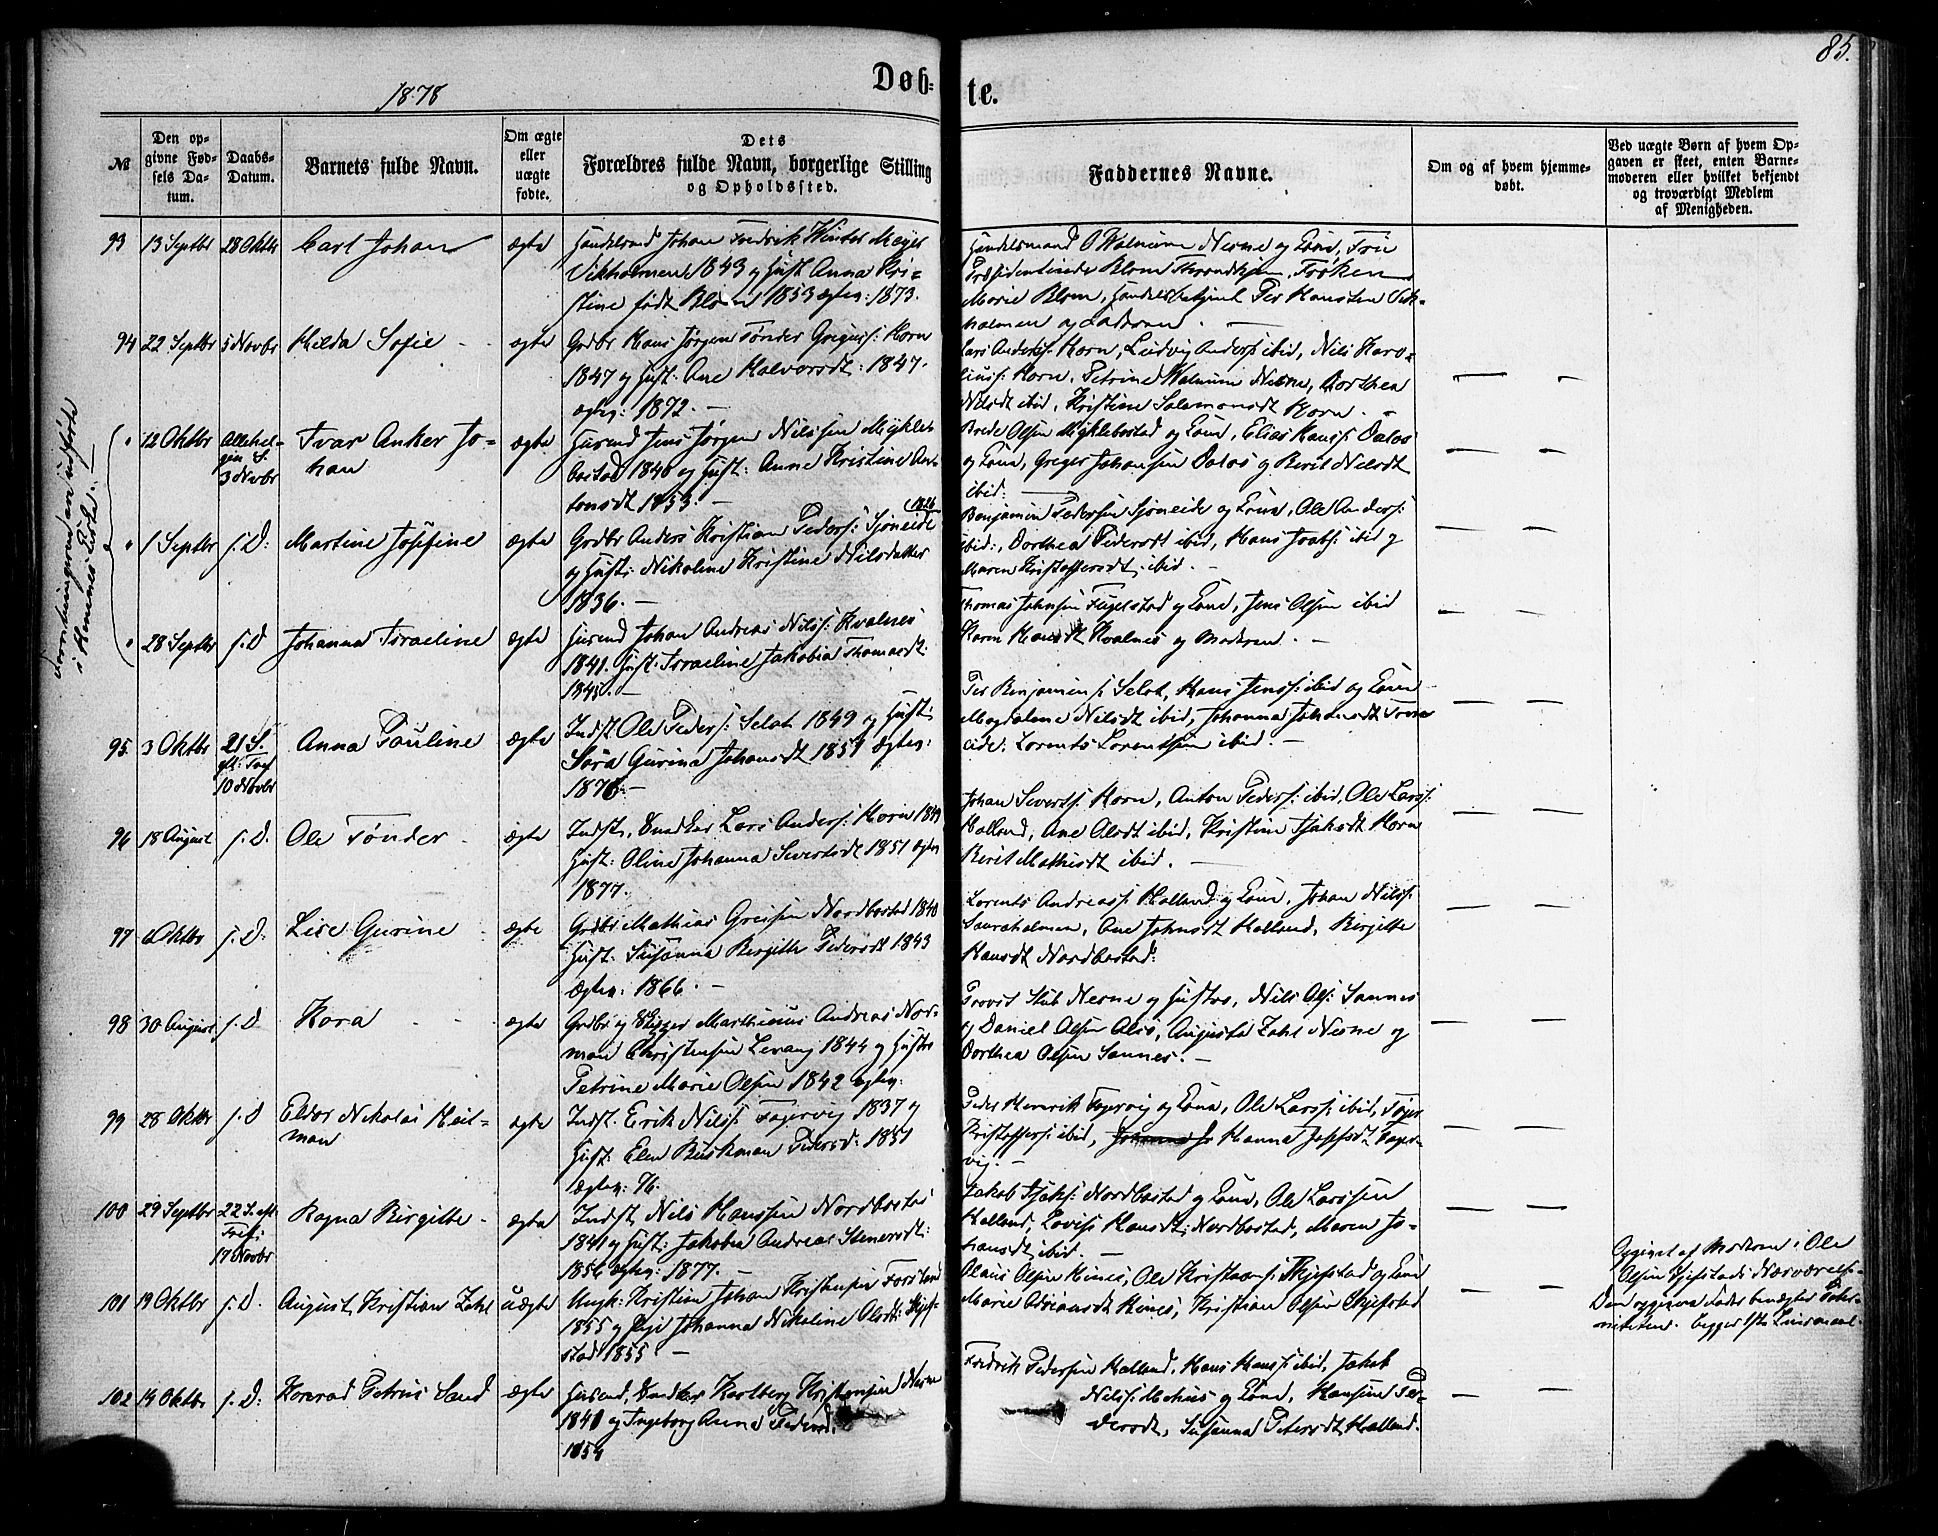 85.
1878
Døb-
te.
№
Den op-
givne Fød-
sels Da-
tum.
Daabs-
Datum.
Barnets fulde Navn.
Om ægte
eller
uægte
fødte.
Dets
Forældres fulde Navn, borgerlige Stilling
og Opholdssted.
Faddernes Navne.
Om og af hvem hjemme-
døbt.
Ved uægte Børn af hvem Op-
gaven er skeet, enten Barne-
moderen eller hvilket bekjendt
og troværdigt Medlem
af Menigheden.
93 13 Septbr 28 Oktbr Carl Johan ægte Handelsmd Johan Fredrik Winter Meyer
Vikholmen 1843 og Hust Anna Kri-
stine født Blom 1853 ægtev: 1873.
Handelsmand O Walnum Nesne og Kone, Fru
Blom Throndhjem, Frøken
Marie Blom, Handelsbetjent Per Hansen Vik-
holmen og Faderen. —
94 22 Septbr 5 Novbr Hilda Sofie ægte Grdbr Hans Jørgen Tønder Gregers: Horn
1847 og Hust: Ane Halvorsdt: 1847.
ægtev: 1872. —
Lars Anders: Horn, Ludvig Anders: ibid, Nils Karo-
lius: Horn, Petrine Walnum Nesne, Dorthea
Nilsdt ibid, Kristine Salamonsdt Horn. —
i Hemnes Liste. —
12 Oktbr Allehel-
gen S.
3 Novbr Ivar Anker Jo-
han ægte Husmd Jens Jørgen Nilssen Mykle-
bostad 1848 og Hust: Anne Kristine An-
tonsdt 1853. —
Brede Olsen Myklebostad og Kone, Elias Hans: Dalos
og Kone, Greger Johansen Dalos og Berit Nilsdt
ibid: —
1 Septbr s. D: Martine Josefine ægte Grdbr Anders Kristian Peders: Sjøneide 1826
og Hust: Nikoline Kristine Nilsdatter
1836. —
Benjamin Pedersen Sjøneide og Kone, Ole Anders:
ibid:, Dorthea Pedersdt ibid, Hans ibid og
Maren Kristoffersdt ibid. —
28 Septbr s. D Johanna Israeline ægte Husmd Johan Andreas Nils: Kvalnes
1841. Hust: Israeline Jakobia Thomasdt:
1845. —
Thomas Johnsen Fuglstad og Kone, Jens Olsen ibid
Karen Hansdt Kvalnes og Moderen. —
95 3 Oktbr 21 S.
eft: Tref
10 Novbr Anna Pauline ægte Indst Ole Peders: Selot 1849 og Hust:
Sara Gurina Johansdt 1851 ægtev:
1876 —
Per Benjamins: Selot, Hans Jens: ibid og Kone
Magdalene Nilsdt ibid, Johanna Johansdt
eide: Lorents Lorentsen ibid. —
96 18 August s. D. Ole Tønder ægte Indst, Snedker Lars Anders: Horn 1849
Hust: Oline Johanna Sivertsdt 1851 ægtev
1877.
Johan Siverts: Horn, Anton Peders: ibid, Ole Lars:
Holland, Ane Olsdt ibid, Kristine Isaksdt Horn
Berit Mathisdt ibid. —
97 6 Oktbr s. D: Lise Gurine ægte Grdbr Mathias Greisen Nordbostad 1840
Hust: Susanna Birgitte Pedersdt 1843
Ægtev: 1866. —
Lorents Andreas: Holland og Kone, Johan Nils:
Sauraholmen, Ane Johnsdt Holland, Birgitte
Hansdt Nordbostad:
98 30 August s. D Kora ægte Grdbr og Marthinus Andreas Nor-
man Christensen Levang 1844 og Hustru
Petrine Marie Olsen 1842 ægtev:
Provst Stub Nesne og Hustru, Nils Ols: Sannes
og Daniel Olsen Alsø, Augusta Zahl Nesne og
Dorthea Olsen Sannes. —
99 28 Oktbr s. D Eldor Nikolai Heit-
man ægte Indst. Erik Nils: Fagervig 1837 og
Hust: Elen Buskman Pedersd: 1851
Ægtev: 76.
Peder Henrik Fagervig og Kone, Ole Lars: ibid,
Kristoffers: ibid, Hanna Josefsdt Fager-
vig. —
100 29 Septbr 22 S. eft
Tref:
17 Novbr Ragna Birgitte ægte Indst Nils Hanssen Nordbostad
1841 og Hust: Jakobia Andrea Stenersdt:
1856 ægtev: 1877. —
Jakob Isaks: Nordbostad og Kone, Ole Larssen
Holland, Lovise Hansdt: Nordbostad, Maren Jo-
hansdt ibid. —
101 19 Oktbr s. D. August, Kristian Zahl uægte Ungk: Kristian Johan Kristensen Forsland
1855 og Pige Johanna Nikoline Olsdt: Skjef-
stad 1855 —
Olaus Olsen Hines, Ole Kristians: Skjefstad og Kone
Marie Adriansdt Hines, Kristian Olsen Skjefstad
Opgivet af Moderen i Ole
Olsen Skjefstads Nærværelse.
Den opgivne Fader benægter Pater-
niteten. begges 1ste Leiermaal.
102 14 Oktbr s. D: Konrad Petrus Sand ægte Husmd, Snedker Karlberg Kristensen Nesne
1848 og Ingeborg Anna Pedersd.
1854
Fredrik Pedersen Holland, Hans Hans: ibid, Jakob
Nils: Mohus og Kone, Hansine Pe-
dersdt, Susanna Petersdt Holland.